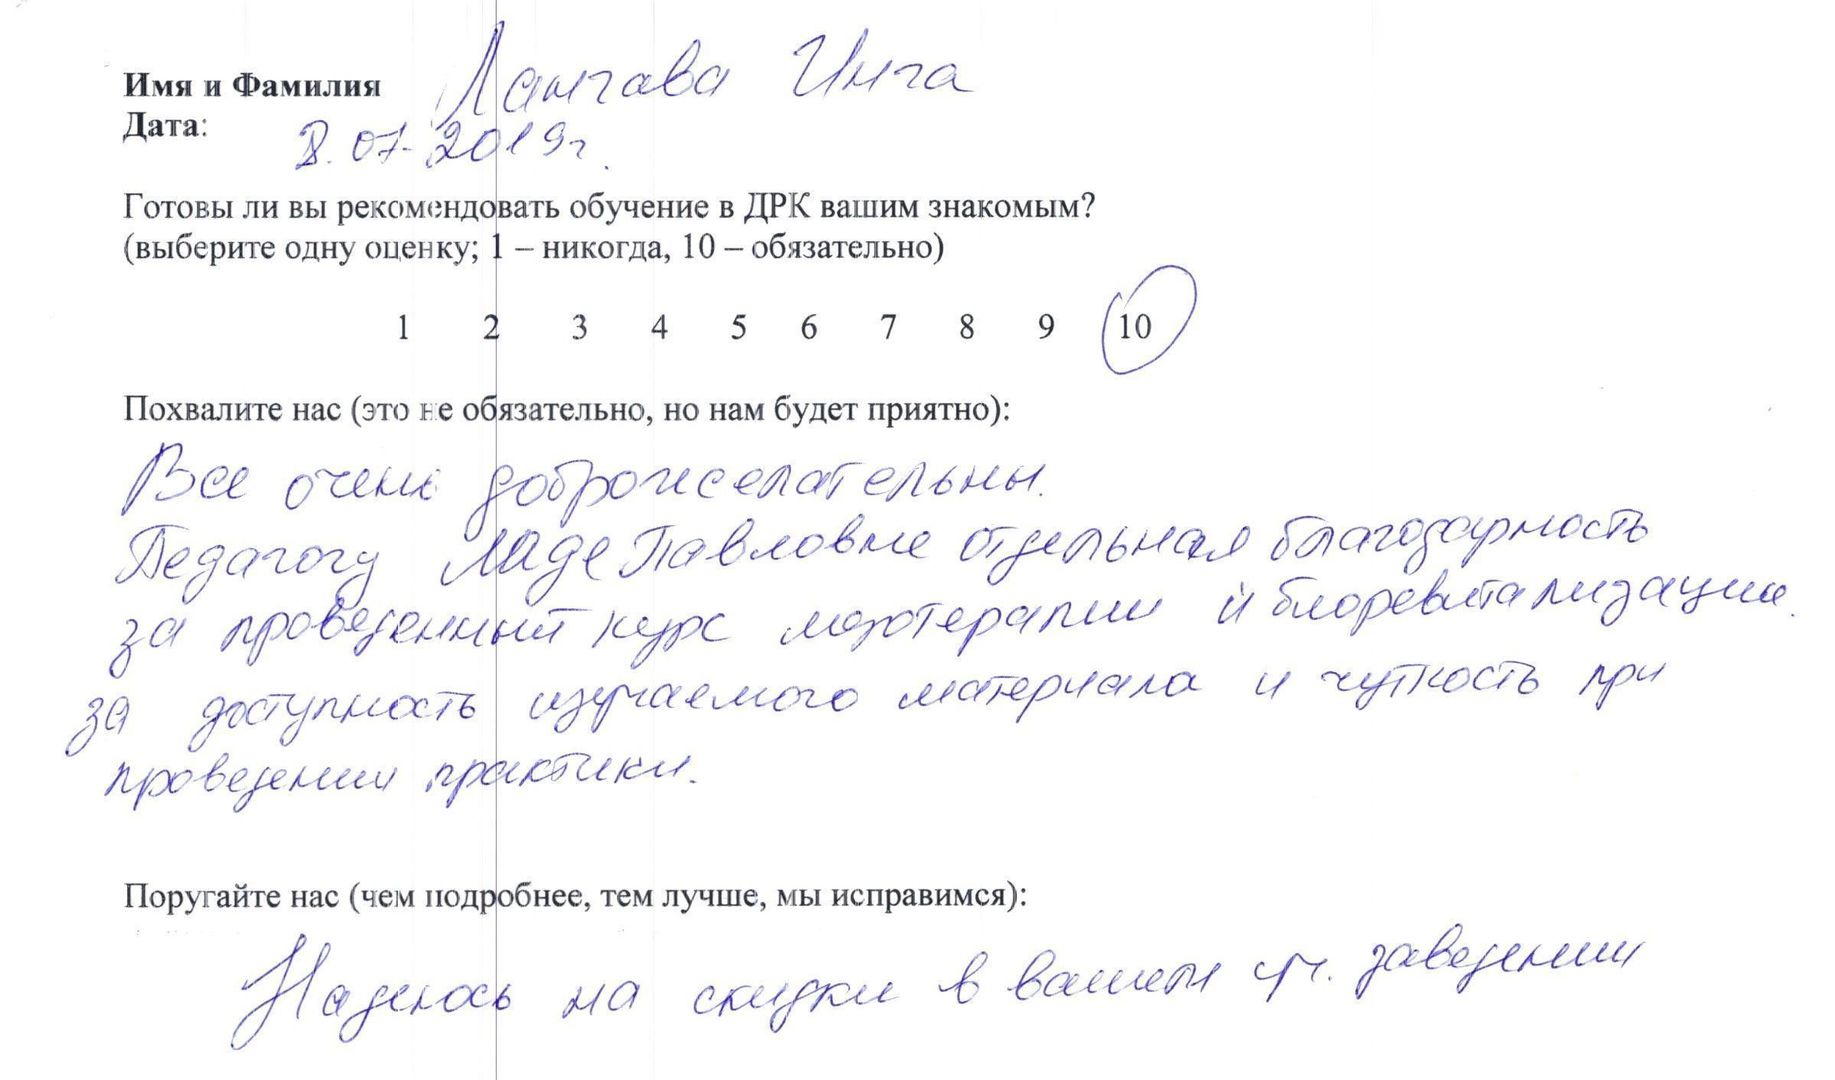 Имя и Фамилия Лангава Инга
Дата: 8.07.2019г.
Готовы ли вы рекомендовать обучение в ДРК вашим знакомым?
(выберите одну оценку; 1 – никогда, 10 – обязательно)
1 2 3 4 5 6 7 8 9 10
Похвалите нас (это не обязательно, но нам будет приятно):
Все очень доброжелательны.
Педагогу Ладе Павловне отдельная благодарность
за проведенный курс мезотерапии и биоревитализации.
за доступность изучаемого материала и чуткость при
проведении практики.
Поругайте нас (чем подробнее, тем лучше, мы исправимся):
Надеюсь на скидки в вашем уч. заведении